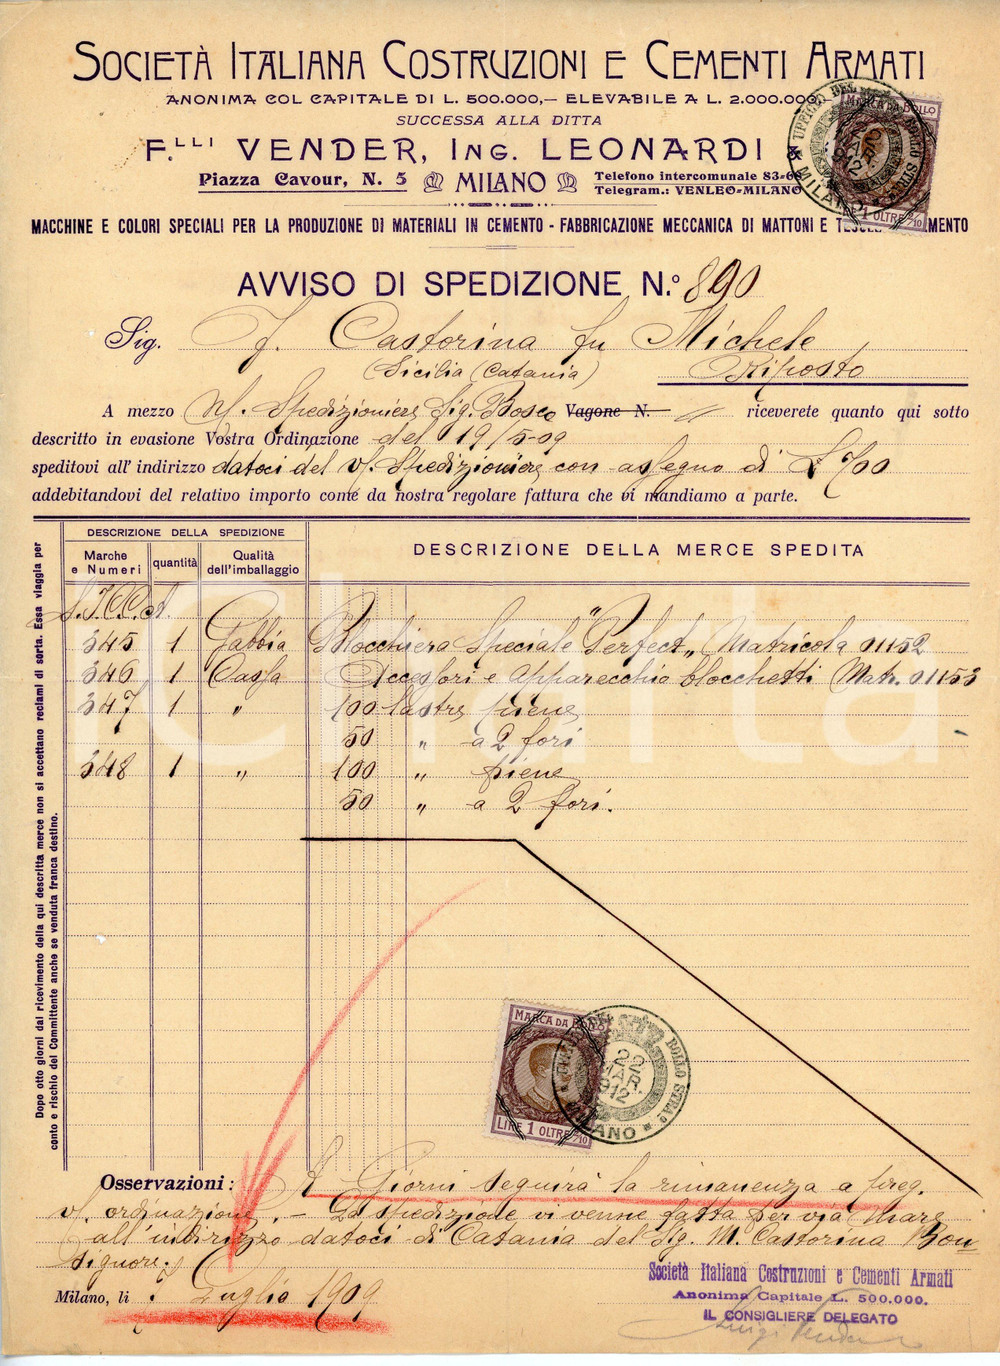 SOCIETÀ ITALIANA COSTRUZIONI E CEMENTI ARMATI
ANONIMA COL CAPITALE DI L. 500.000,— ELEVABILE A L. 2.000.000
SUCCESSA ALLA DITTA
F.LLI VENDER, ING. LEONARDI
Piazza Cavour, N. 5 MILANO Telefono intercomunale 83-68
Telegram.: VENLEO-MILANO
MARCA DA BOLLO
UFFICIO DEL BOLLO STRA°
MILANO
1912
LIRE 1 OLTRE 2/10
MACCHINE E COLORI SPECIALI PER LA PRODUZIONE DI MATERIALI IN CEMENTO - FABBRICAZIONE MECCANICA DI MATTONI E CEMENTO
AVVISO DI SPEDIZIONE N.° 890
Sig. J. Castorina fu Michele
(Sicilia (Catania) Riposto
A mezzo N/. Spedizioniere Sig. Bosco Vagone N. riceverete quanto qui sotto
descritto in evasione Vostra Ordinazione del 19/5-09
speditovi all' indirizzo datoci del V/. Spedizioniere con assegno di £ 700
addebitandovi del relativo importo come da nostra regolare fattura che vi mandiamo a parte.
DESCRIZIONE DELLA SPEDIZIONE
DESCRIZIONE DELLA MERCE SPEDITA
Marche e Numeri quantità Qualità dell'imballaggio
S.I.C.C.A.
345 1 Gabbia Blocchiera Speciale "Perfect" Matricola 01152
346 1 Cassa Accessori e apparecchio blocchetti Matr. 01153
347 1 " 100 lastre piene
50 " a 2 fori
348 1 " 100 " piene
50 " a 2 fori.
iCharta
Dopo otto giorni dal ricevimento della qui descritta merce non si accettano reclami di sorta. Essa viaggia per
conto e rischio del Committente anche se venduta franca destino.
MARCA DA BOLLO
LIRE 1 OLTRE 2/10
UFFICIO DEL BOLLO STRA°
22 MAR. 1912
MILANO
Osservazioni: A Giorni seguirà la rimanenza a preg.
V/. ordinazione. - La spedizione vi venne fatta per via Mare
all'indirizzo datoci di Catania del Sig. M. Castorina Bon
signore.
Milano, li 7 Luglio 1909
Società Italiana Costruzioni e Cementi Armati
Anonima Capitale L. 500.000.
IL CONSIGLIERE DELEGATO
Luigi Vender